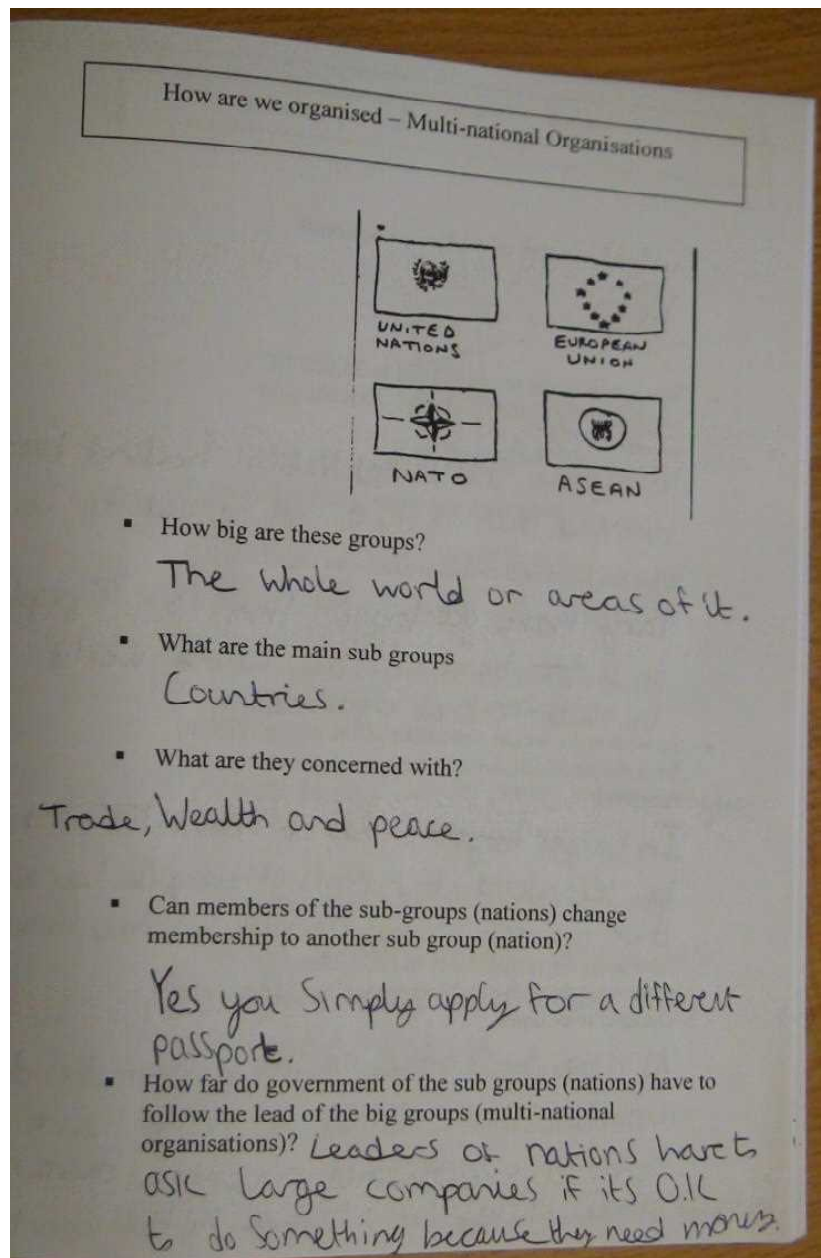 How are we organised – Multi-national Organisations
UNITED
NATIONS
EUROPEAN
UNION
NATO
ASEAN
▪ How big are these groups?
The whole world or areas of it.
▪ What are the main sub groups
Countries.
▪ What are they concerned with?
Trade, Wealth and peace.
▪ Can members of the sub-groups (nations) change
membership to another sub group (nation)?
Yes you Simply apply for a different
passport.
▪ How far do government of the sub groups (nations) have to
follow the lead of the big groups (multi-national
organisations)? Leaders of nations have to
ask large companies if its O.K
to do Something because they need money.